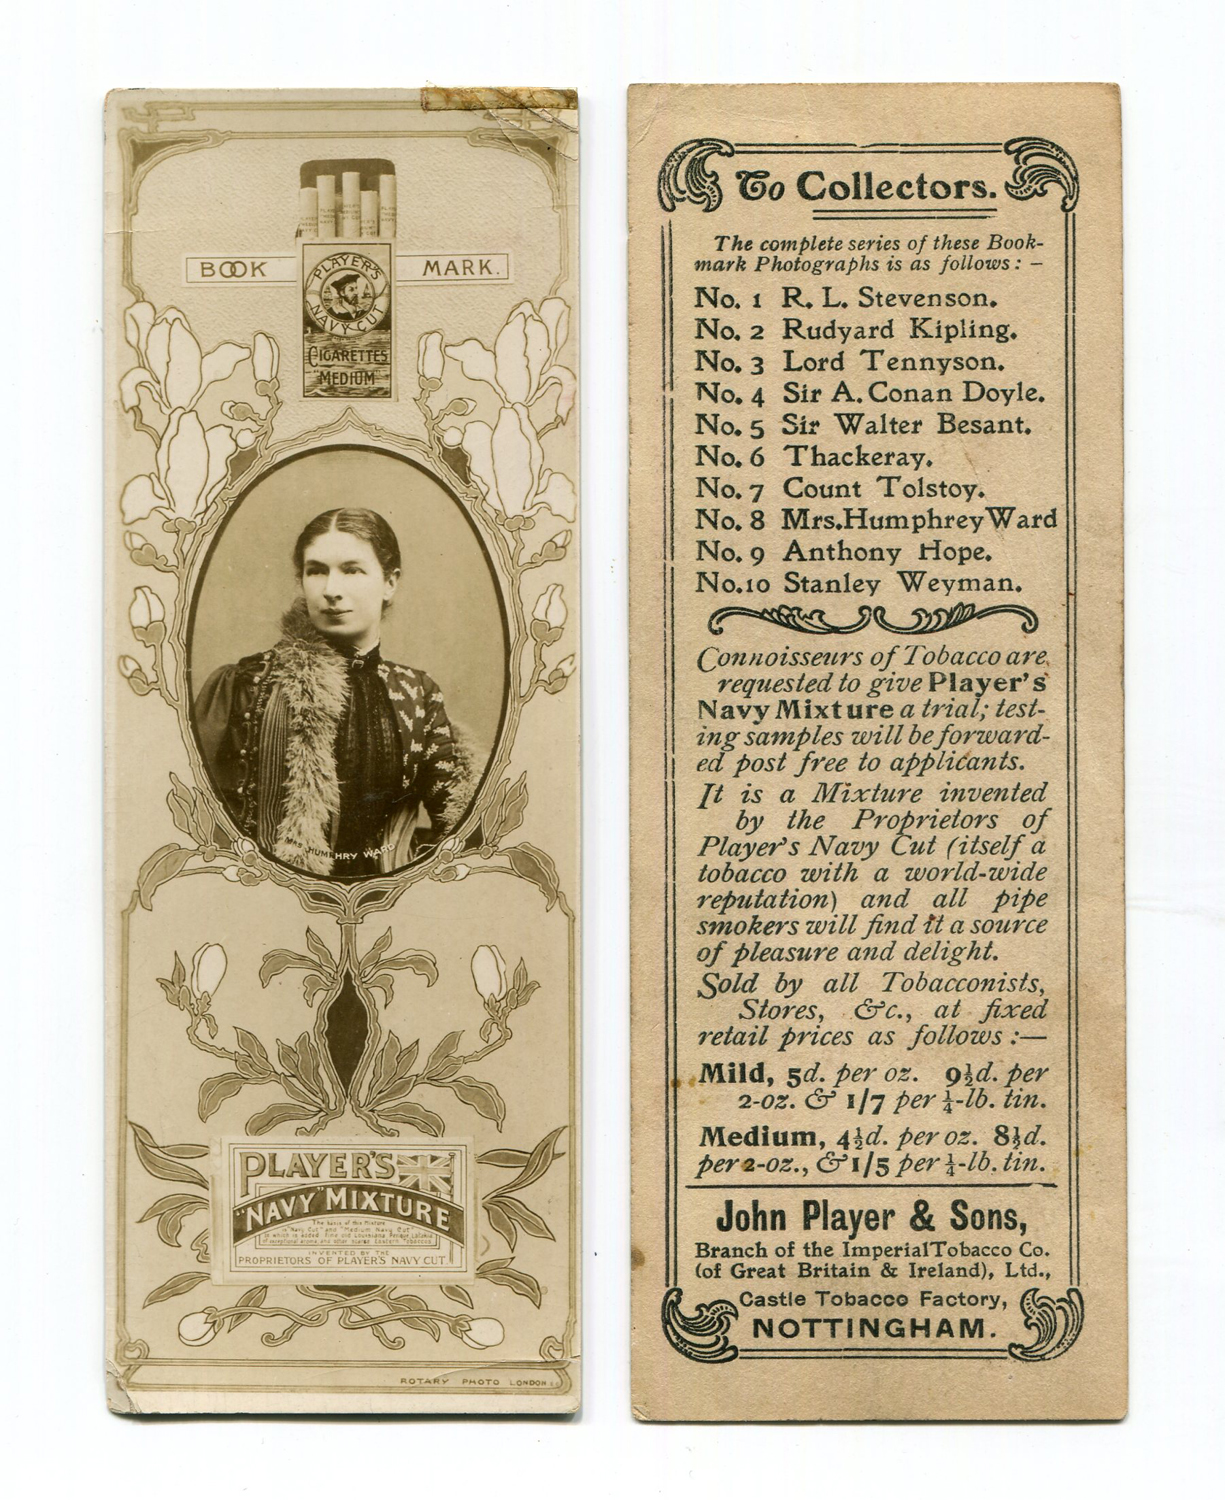 BOOK MARK.
PLAYER'S
NAVY CUT
CIGARETTES
"MEDIUM"
MRS HUMPHRY WARD
PLAYER'S
"NAVY" MIXTURE
The basis of this Mixture
is "Navy Cut" and "Medium Navy Cut"
to which is added Fine old Louisiana Perique Latakia
of exceptional aroma and other
INVENTED BY THE
PROPRIETORS OF PLAYER'S NAVY CUT
ROTARY PHOTO LONDON
To Collectors.
The complete series of these Book-
mark Photographs is as follows: –
No. 1 R. L. Stevenson.
No. 2 Rudyard Kipling.
No. 3 Lord Tennyson.
No. 4 Sir A. Conan Doyle.
No. 5 Sir Walter Besant.
No. 6 Thackeray.
No. 7 Count Tolstoy.
No. 8 Mrs. Humphrey Ward
No. 9 Anthony Hope.
No. 10 Stanley Weyman.
Connoisseurs of Tobacco are
requested to give Player's
Navy Mixture a trial; test-
ing samples will be forward-
ed post free to applicants.
It is a Mixture invented
by the Proprietors of
Player's Navy Cut (itself a
tobacco with a world-wide
reputation) and all pipe
smokers will find it a source
of pleasure and delight.
Sold by all Tobacconists,
Stores, &c., at fixed
retail prices as follows:—
Mild, 5d. per oz. 9½d. per
2-oz. & 1/7 per ¼-lb. tin.
Medium, 4½d. per oz. 8½d.
per 2-oz., & 1/5 per ¼-lb. tin.
John Player & Sons,
Branch of the Imperial Tobacco Co.
(of Great Britain & Ireland), Ltd.,
Castle Tobacco Factory,
NOTTINGHAM.